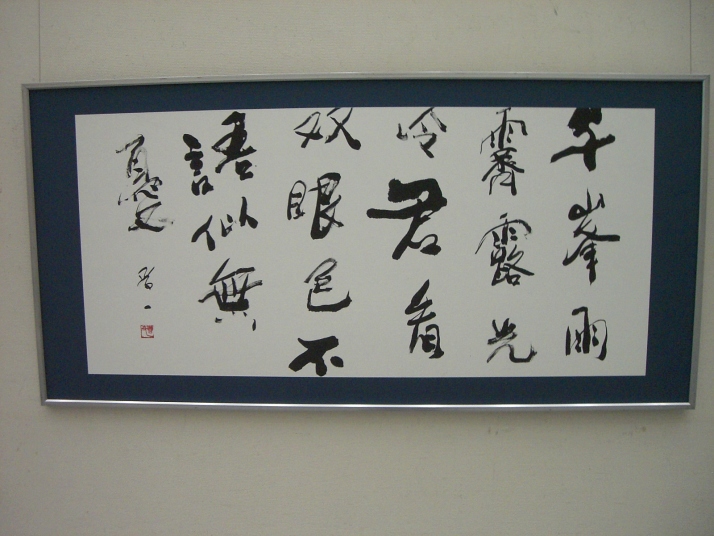 千峯雨
霽露光
冷君看
双眼色不
語似無
憂